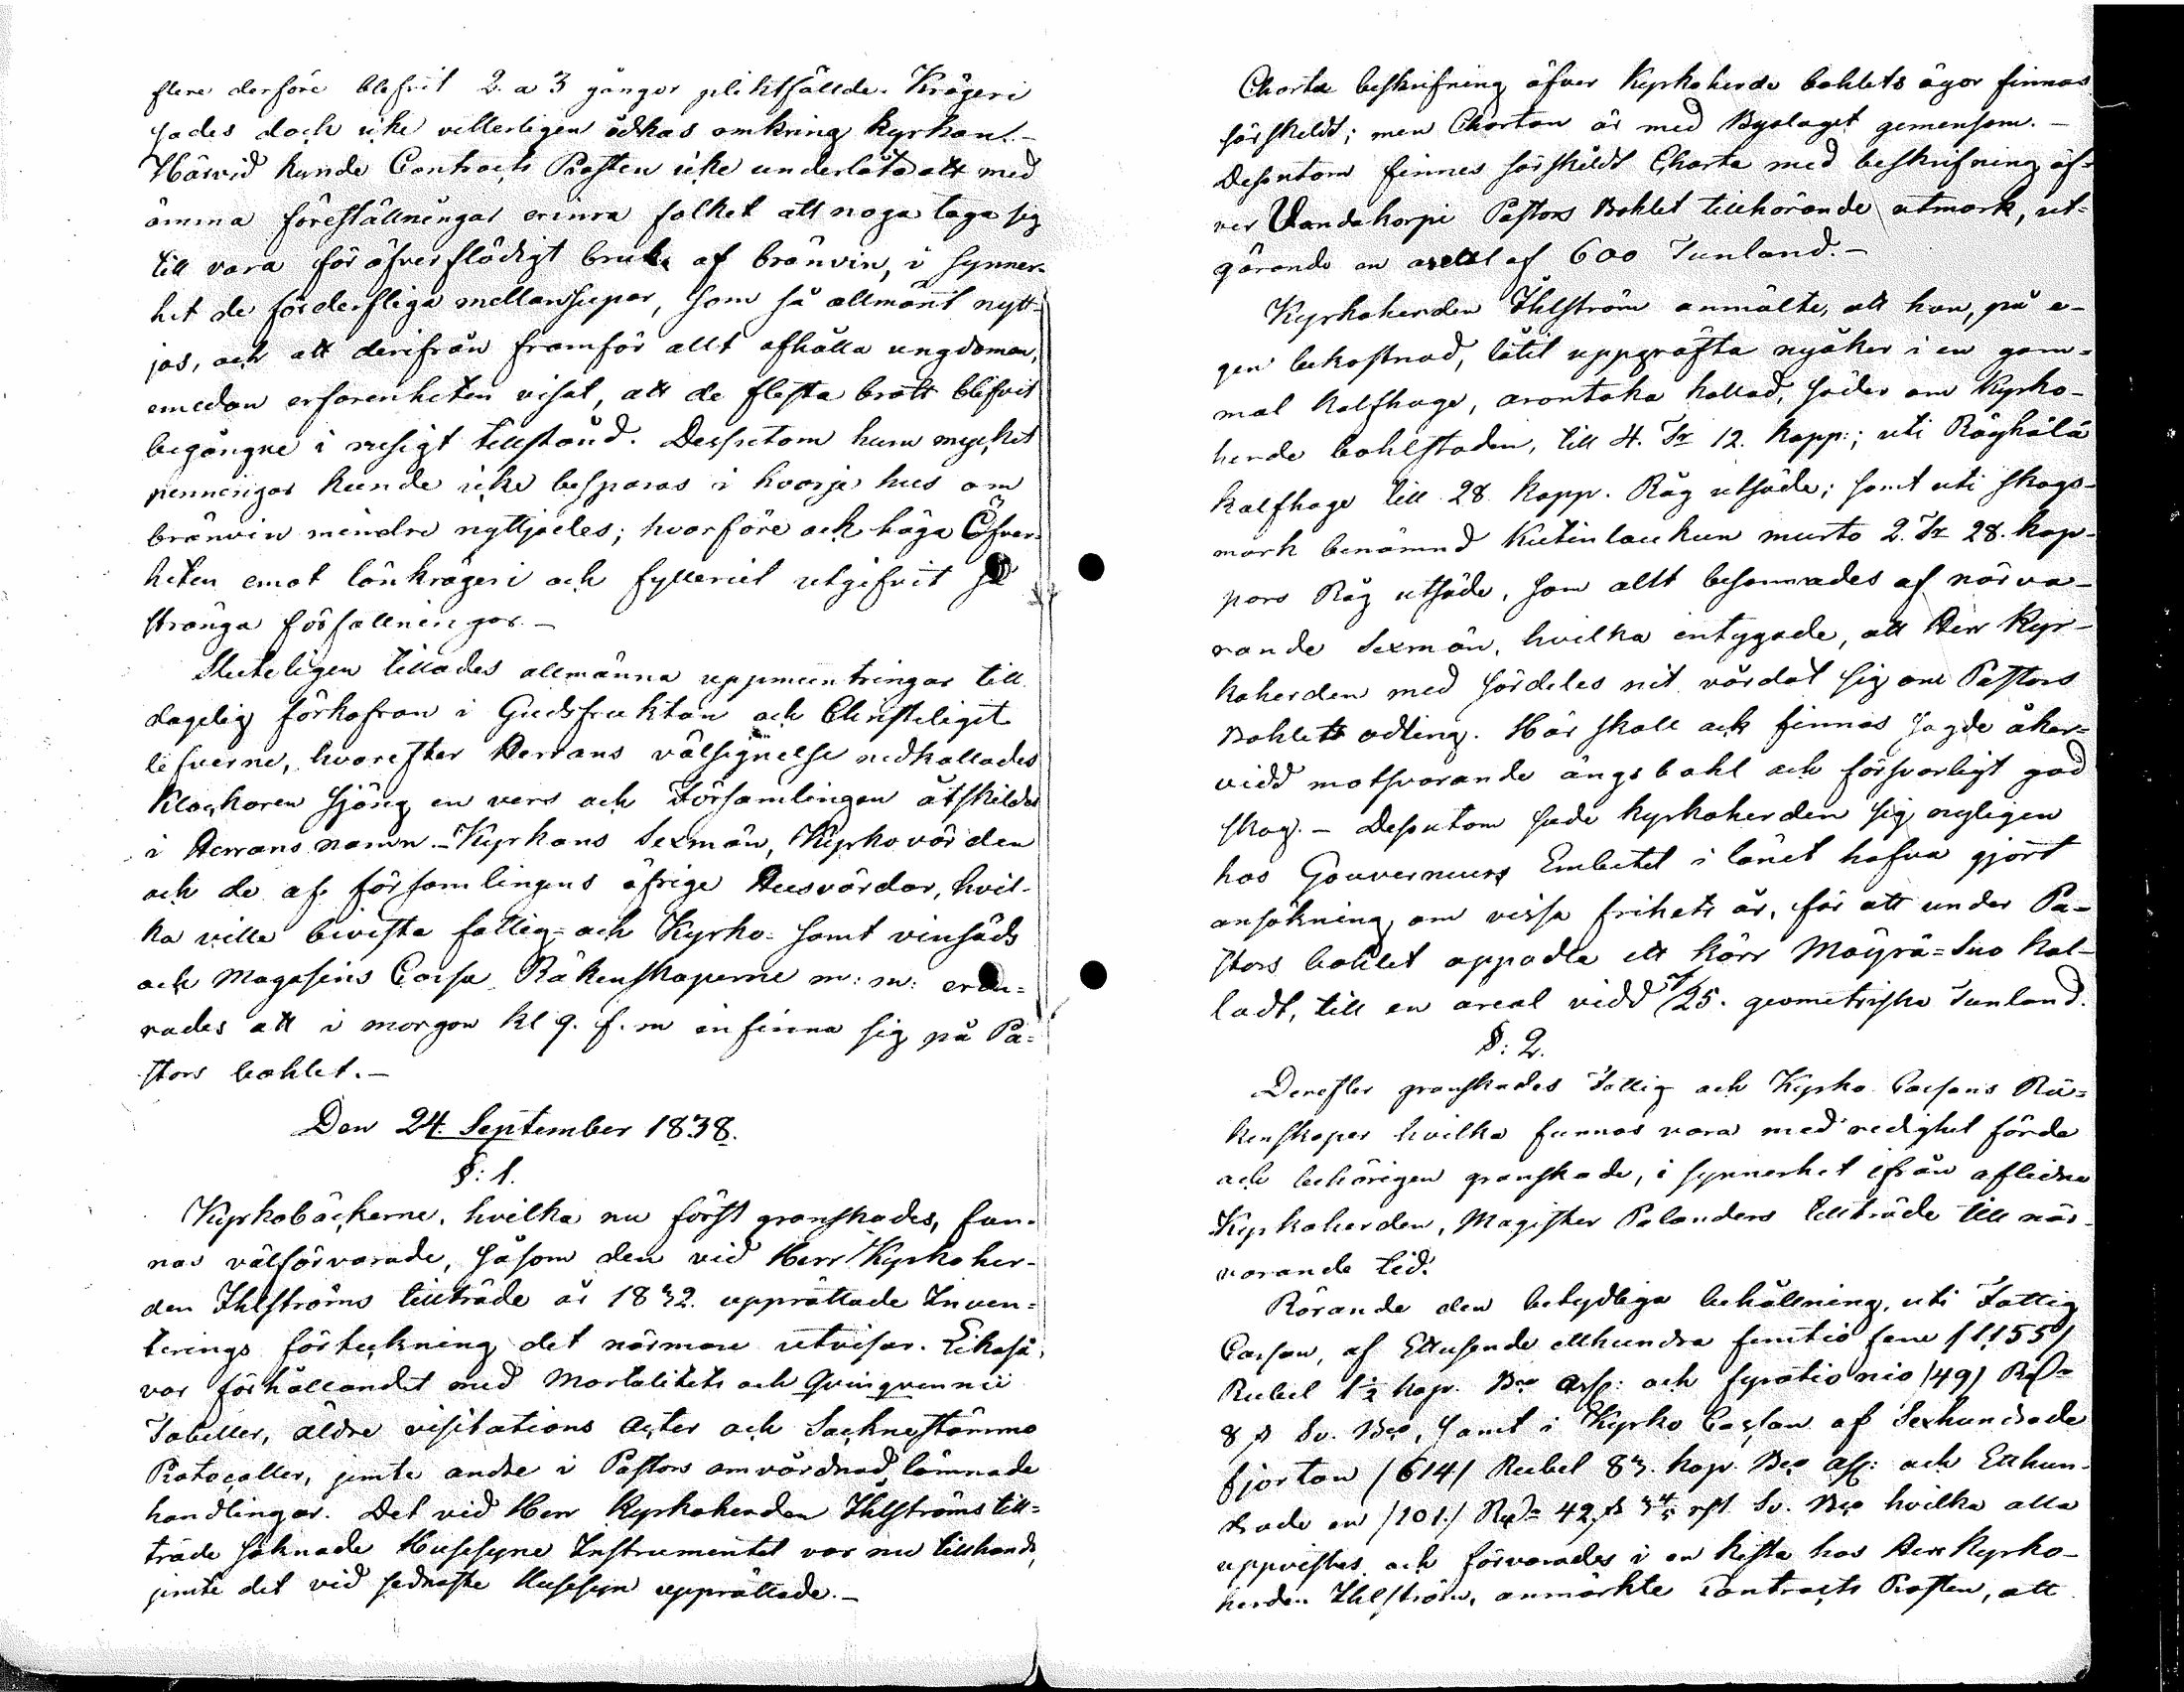 flere derföre blefvit 2. a 3 gånger pliktfällde. Krögeri
sades doch icke vetterligen idkas omkring kyrkan. -
Härvid kunde Contracts Prosten icke underlåta att med
ömma föreställningar erinra folket att noga taga sig
till vara för öfverflödigt bruk af bränvin, i synner-
het de förderfliga mellansupar, som så allmänt nytt-
jas, och att derifrån framför allt afhålla ungdomen,
emedan erfarenheten visat, att de flesta brott blifvit
begångne i rusigt tillstånd. Dessutom huru mycket
penningar kunde icke besparas i hvarje hus om
bränvin mindre nyttjades; hvarföre och höga Öfver-
heten emot lönkrögeri och fylleriet utgifvit så
stränga författningar. -
Sluteligen tillades allmänna uppmuntringar till
dagelig förkofran i Gudsfruktan och Christeligit
lefverne, hvarefter Herrans välsignelse nedkallades
Klockaren sjöng en vers och Församlingen åtskildes
i Herrans namn. - Kyrkans Sexmän, Kyrkovärden
och de af församlingens öfrige Husvärdar, hvil-
ka ville bivista fattig- och Kyrko- samt vinsäds
och Magasins Cassa Räkenskaperne m: m:
rades att i morgon kl 9. f. m infinna sig på Pa-
stors bohlet. -
Den 24. September 1838.
§: 1.
Kyrkobäckerne, hvilka nu först granskades, fun-
nos välförvarade, såsom den vid Herr Kyrkoher-
den Ihlströms tillträde år 1832. upprättade Inven-
terings förteckning det närmare utvisar. Likaså
var förhållandet med Mortalitets och Qvinqvennii
Tabeller, äldre visitations Acter och Socknestämmo
Protocoller, jemte andre i Pastors omvårdnad lämnade
handlingar. Det vid Herr Kyrkoherden Ihlströms till-
träde saknade Husesyne Instrumentet var nu tillhands,
jemte det vid sednaste Husesyn upprättade. -
Charta beskrifning öfver Kyrkoherde bohlets ägor finnas
särskildt; men Chartan är med Byalaget gemensam. -
Dessutom finnes särskildt Charta med beskrifning öf-
ver Vandakorpi Pastors Bohlet tillhörande utmark, ut-
görande en areal af 600 Tunland. -
Kyrkoherden Ihlström anmälte, att han, på e-
gen bekostnad, låtit uppgräfta nyåker i en gam-
mal kalfhage, arontaka kallad, söder om Kyrko-
herde bohlstaden, till 4. Tr 12. kapp:; uti Räyhälä
kalfhage till 28 kapp. Råg utsäde; samt uti skogs-
mark benämnd Kutinlauhun murto 2. Tr 28. kap-
pars Råg utsäde, som allt besannades af närva-
rande Sexmän, hvilka intygade, att Herr Kyr-
koherden med särdeles nit vårdat sig om Pastors
Bohlets odling. Här skall ock finnas sagde åker-
vidd motsvarande ängsbohl och försvarligt god
skog. - Dessutom sade kyrkoherden sig nyligen
hos Gouverneurs Embetet i länet hafva gjort
ansökning om vissa frihets år, för att under Pa-
stors bohlet uppodla ett kärr Mäyrä-Suo kal-
ladt, till en areal vidd 25. geometriska Tunland.
§: 2.
Derefter granskades Fattig och Kyrko Cassans Rä-
kenskaper hvilka funnos vara med redighet förda
och behörigen granskade, i synnerhet ifrån aflidne
Kyrkoherden, Magister Polanders tillträde till när-
varande tid.
Rörande den betydliga behållning, uti Fattig
Cassan, af Ettusende etthundra femtio fem /1155/
Rubel 1½ kop. Bco Ass: och fyratio nio /49/ Rd
8 s Sv. Bco, samt i Kyrko Cassan af Sexhundrade
fjorton /614/ Rubel 83. kop. Bco Ass: och Etthun-
drade en /101./ Rd 42 s Sv. Bco hvilka alla
uppvistes och förvarades i en kista hos Herr Kyrko-
herden Ihlström, anmärkte Contracts Prosten, att